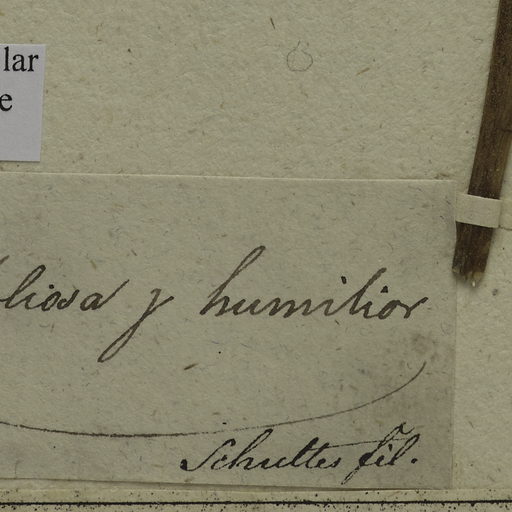 lar
e
liosa γ humilior
Schultes fil.